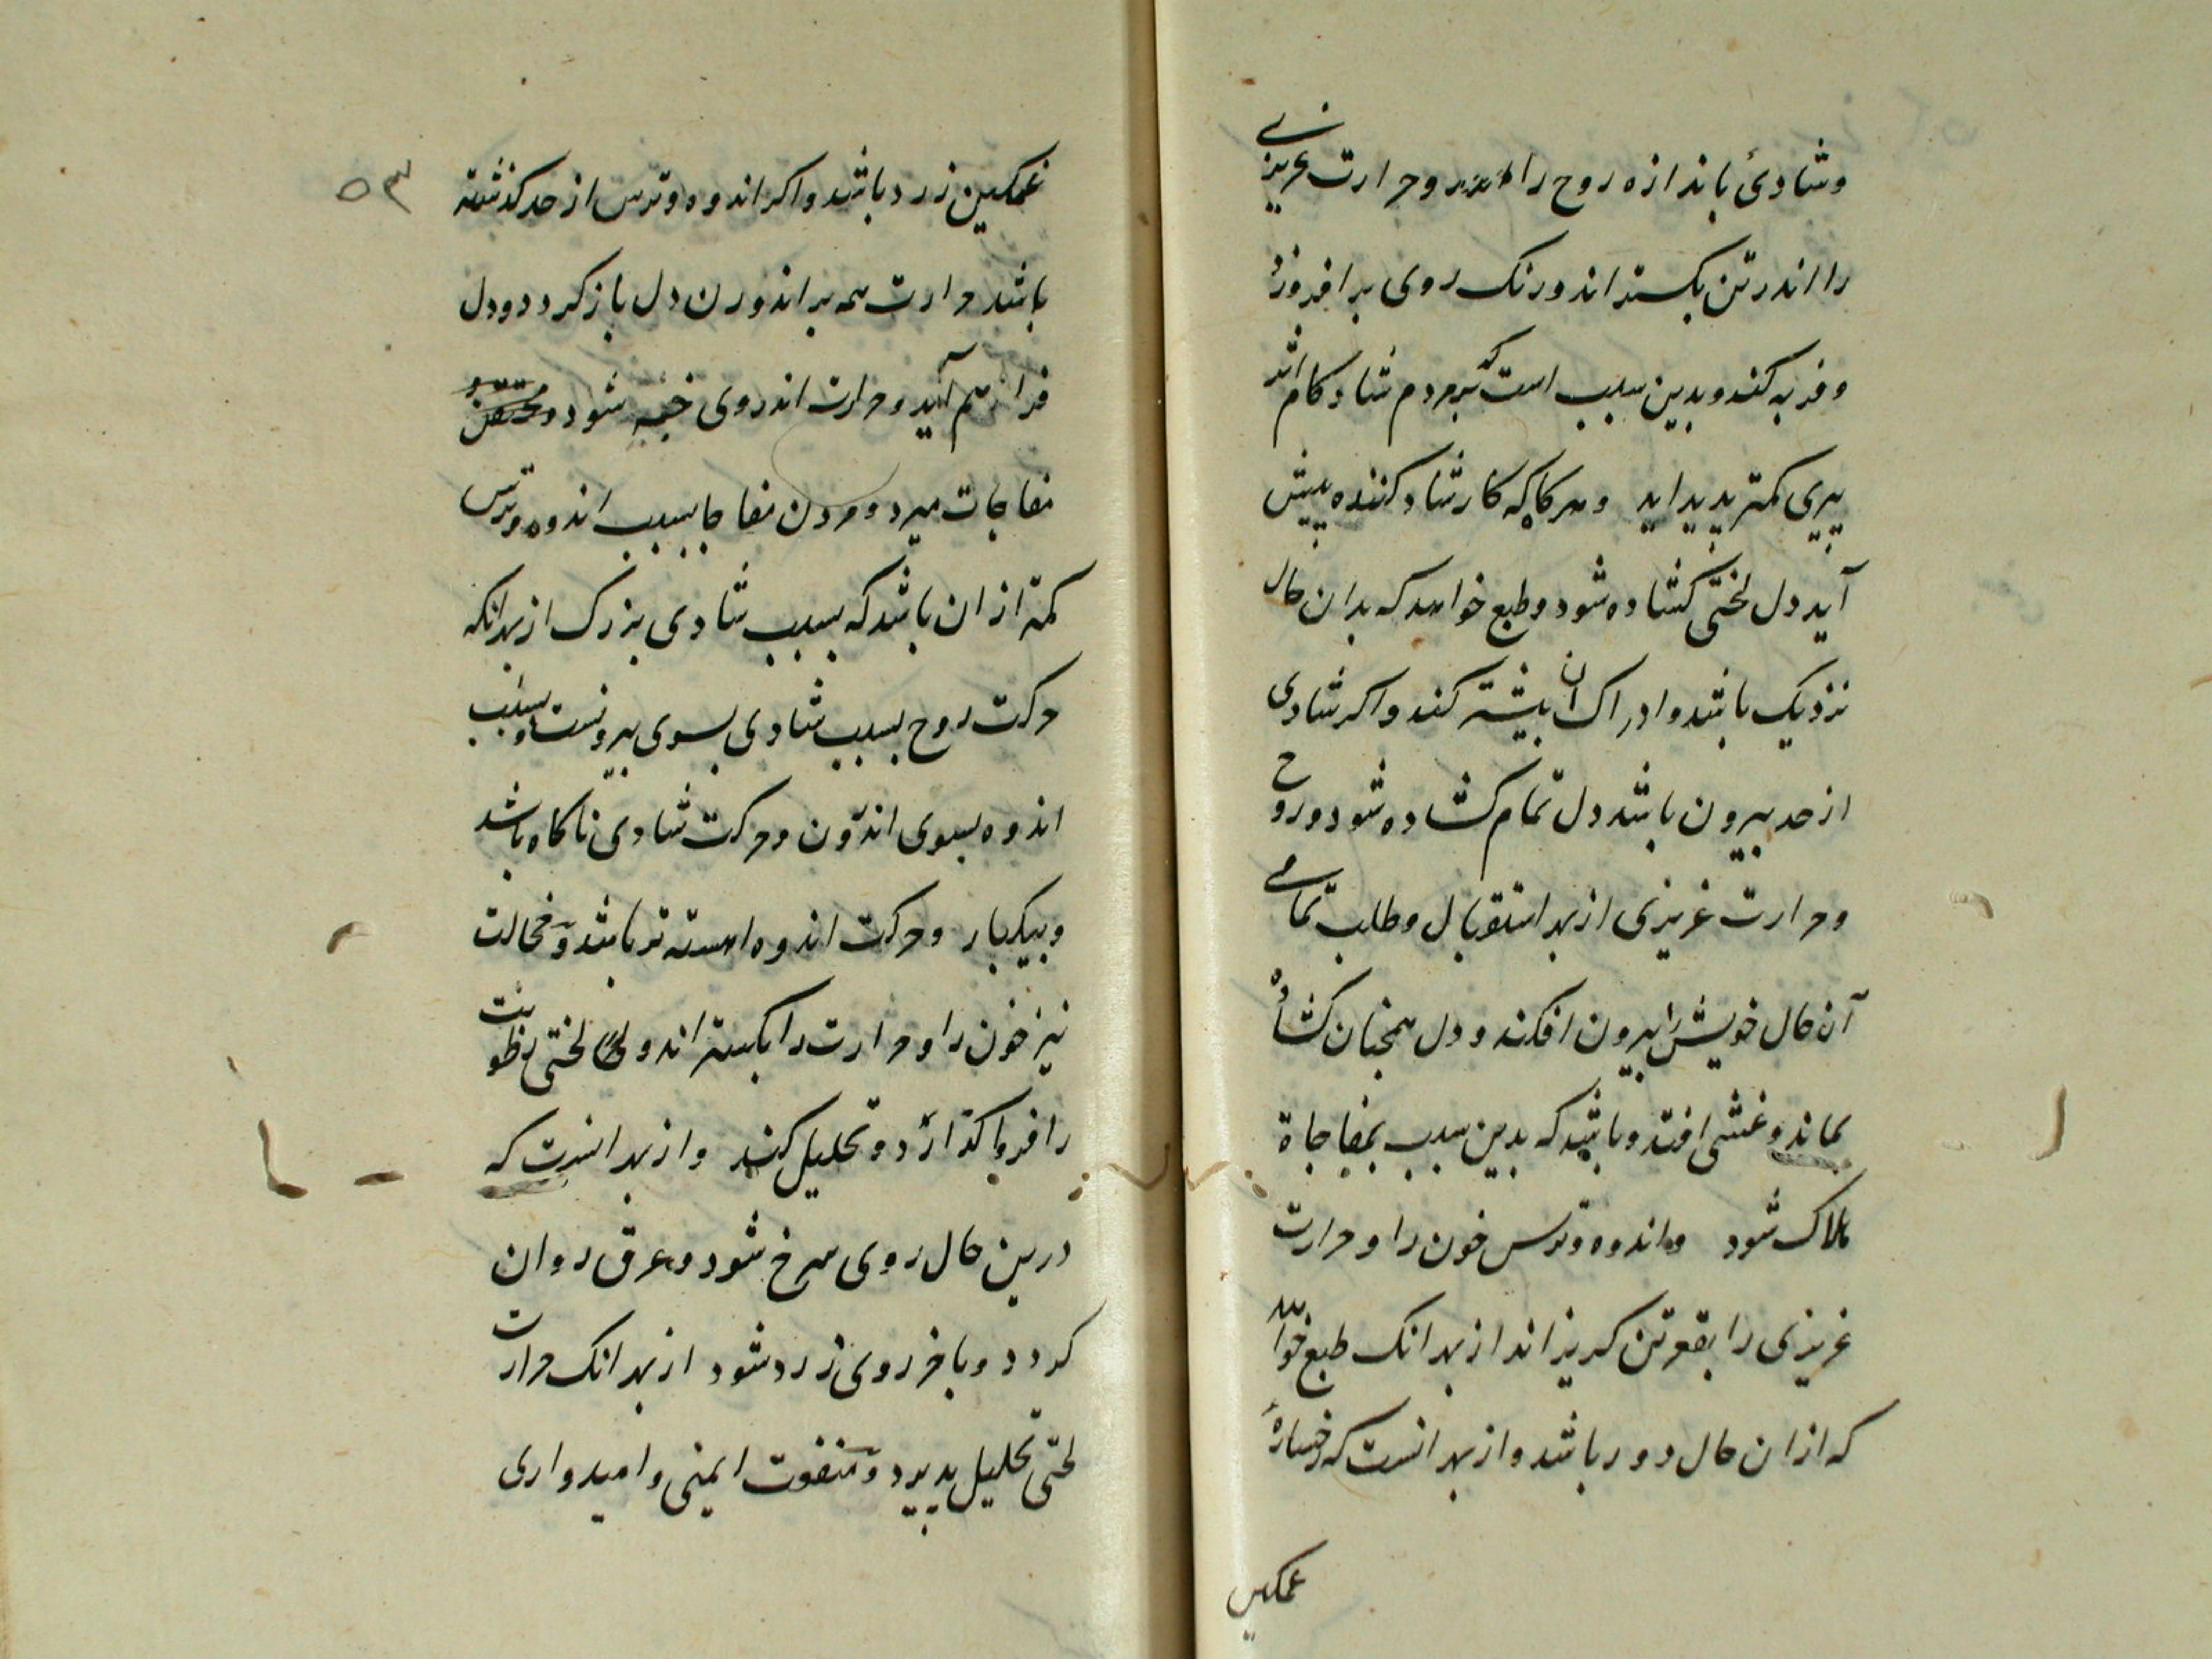 وشادیٔ باندازه روح را وحرارت غریزی
را اندر تن بکستراند ورنک روی برافروزد
وفربه کند وبدین سبب است که بر مردم شادکام اثر
پیری کمتر پدید اید وهرکاه که کار شاد کننده پیش
آید دل لختی کشاده شود وطبع خواهد که بدان حال
نزدیک باشد وادراک ان بیشتر کند واکر شادی
از حد بیرون باشد دل تمام کشاده شود وروح
وحرارت غریزی از بهر استقبال وطلب تمامی
آن حال خویش را بیرون افکند ودل همچنان کشاده
بماند وغشی افتد وباشد که بدین سبب بمفاجاة
هلاک شود واندوه وترس خون را وحرارت
غریزی را بقعر تن کریزاند از بهر انک طبع خواهد
که ازان حال دور باشد واز بهر انست که رخساره
غمکین
۵۳
غمکین زرد باشد واکر اندوه وترس از حد کذشته
باشد حرارت همه براندورن دل باز کردد ودل
فراهم آید وحرارت اندر وی خبه شود ومحتقن
مفاجات میرد ومردن مفاجا بسبب اندوه وترس
کمتر ازان باشد که بسبب شادی بزرک از بهر انکه
حرکت روح بسبب شادی بسوی بیرونست وبسبب
اندوه بسوی اندرون وحرکت شادی ناکاه باشد
وبیکبار وحرکت اندوه اهسته تر باشد وخجالت
نیز خون را وحرارت را بکستراند ولی لختی رطوبت
را فروا کذارد وتحلیل کند واز بهر انست که
درین حال روی سرخ شود وعرق روان
کردد وباخر روی زرد شود از بهر انک حرارت
لختی تحلیل پدیرد ومنفوت ایمنی وامیدواری